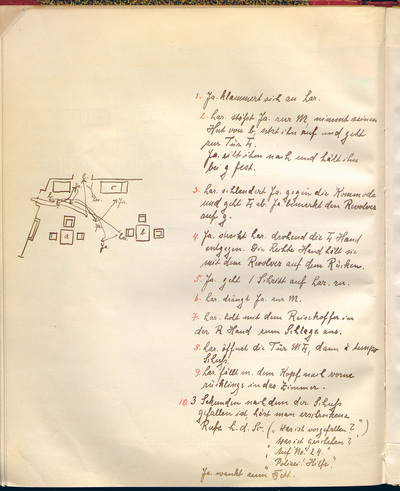 1. Ja. klammert sich an Lar.
2. Lar. stößt Ja. zur M, nimmt seinen
Hut von b, setzt ihn auf und geht
zur Tür T,.
Ja. eilt ihm nach und hält ihn
bei g fest.
3. Lar. schleudert Ja. gegen die Kommode
und geht T, ab. Ja. bemerkt den Revolver
auf g.
4. Ja. streckt Lar. drohend die L Hand
entgegen. Die Rechte Hand hält sie
mit dem Revolver auf dem Rücken.
5. Ja. geht 1 Schritt auf Lar. zu.
6. Lar. drängt Ja. zur M.
7. Lar. holt mit dem Reisekoffer in
der R Hand zum Schlage aus.
8. Lar. öffnet die Tür M T, dann à tempo
Schuß.
9. Lar. fällt m. dem Kopf nach vorne
rücklings in das Zimmer.
10. 3 Sekunden nachdem der Schuß
gefallen ist hört man erschrockene
Rufe h. d. Sc. ("Was ist vorgefallen?")
"Was ist geschehen?"
"Auf No. 24."
"Polizei! Hilfe."
Ja. wankt zum Bett.
a
b
e
Ja
Lar